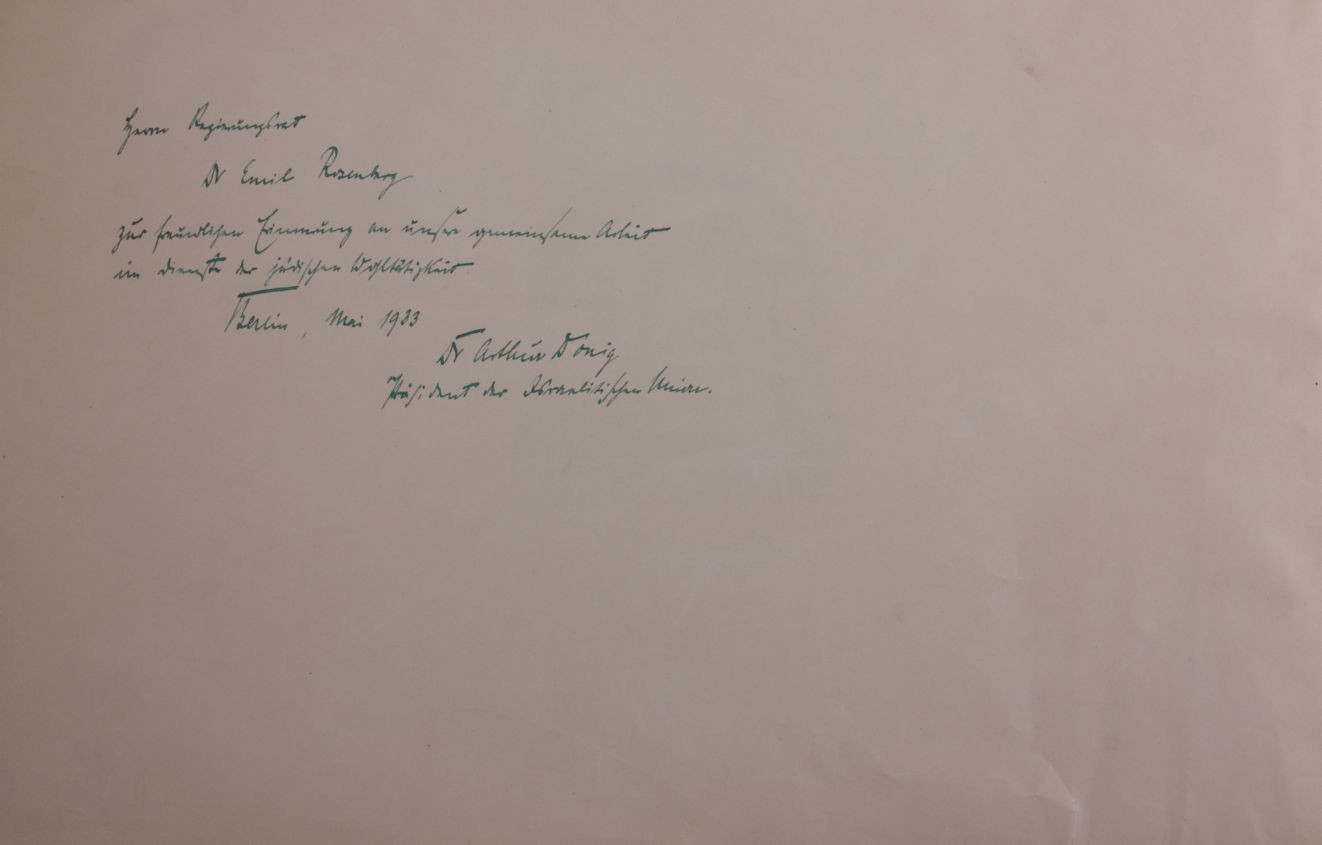 Herrn Regierungsrat
Dr Emil Rosenberg
zur freundlichen Erinnerung an unsere gemeinsame Arbeit
im Dienste der jüdischen Wohltätigkeit
Berlin, Mai 1933
Dr Arthur
Präsident der Israelitischen Union.